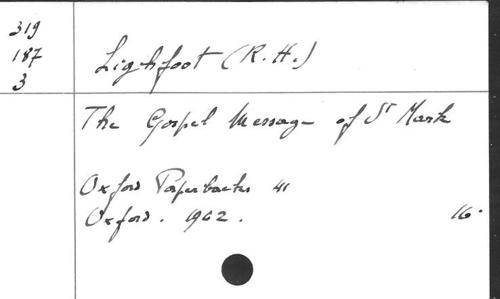 319
187
3
Lighfoot (R.H.)
The Gospel Message of St Mark
Oxford Paperbacks 41
Oxford. 1962.
16.